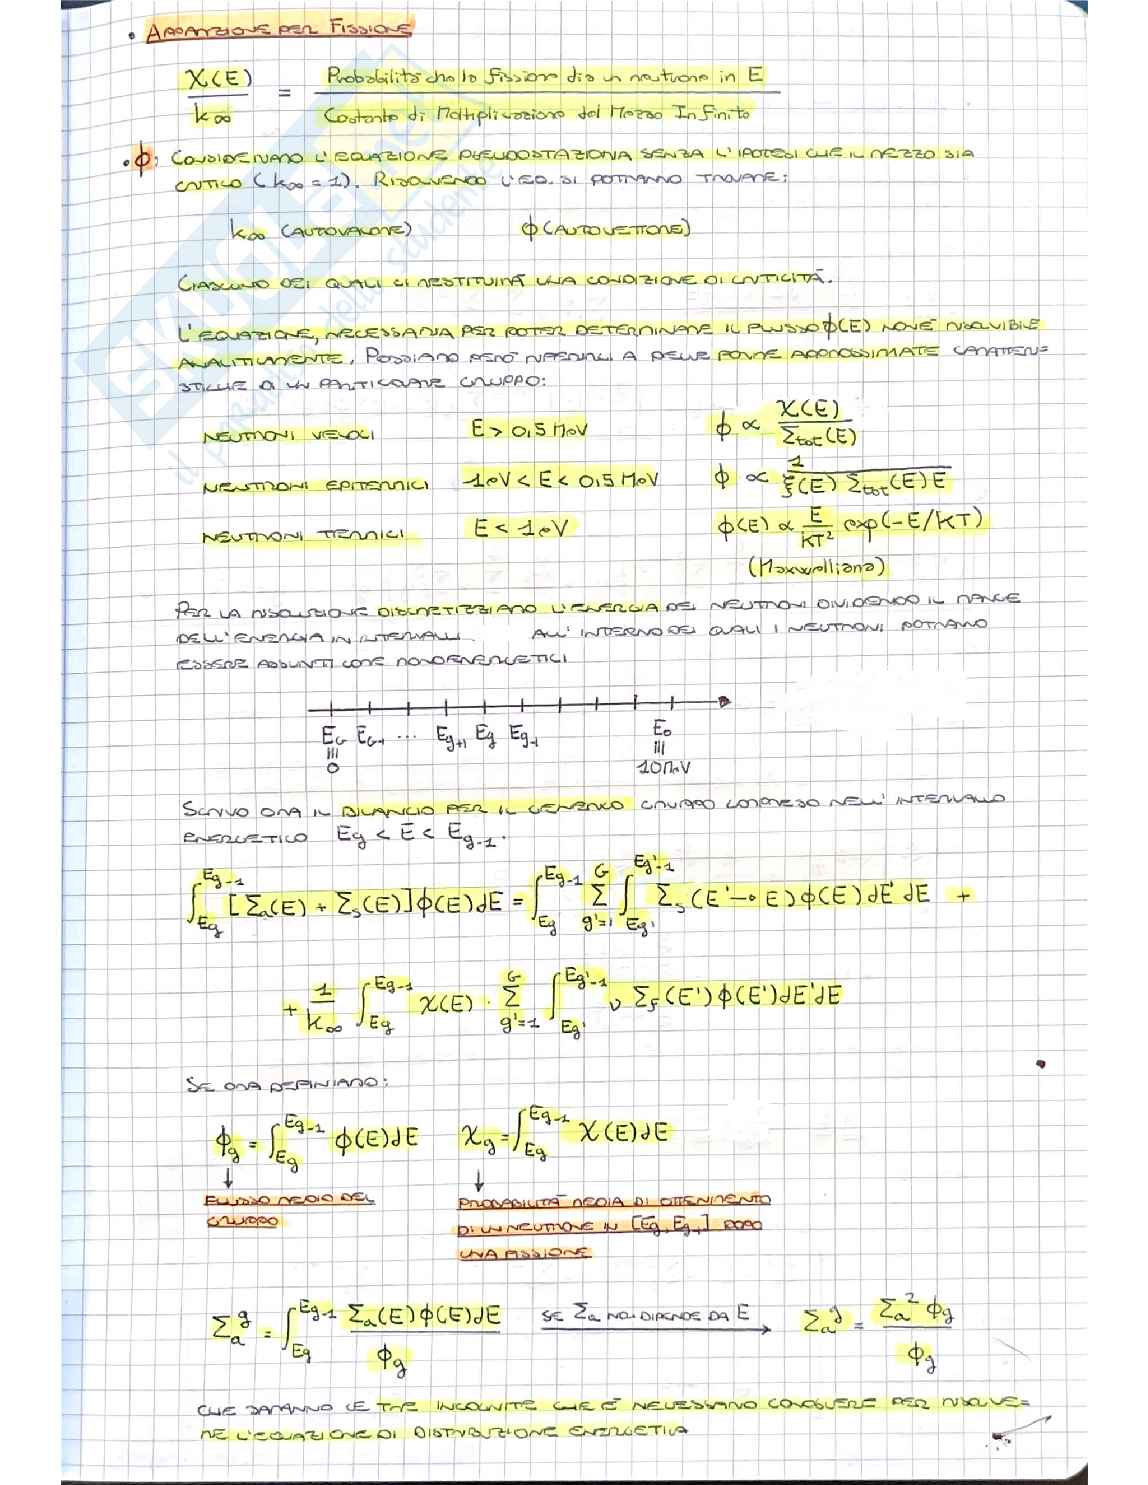 • APPARIZIONE PER FISSIONE
χ(E) / k∞ = Probabilità che la fissione dia un neutrone in E / Costante di Moltiplicazione del Mezzo Infinito
• ϕ: CONSIDERIAMO L'EQUAZIONE PSEUDOSTAZIONARIA SENZA L'IPOTESI CHE IL MEZZO SIA
CRITICO (k∞ = 1). RISOLVENDO L'EQ. SI POTRANNO TROVARE:
k∞ (AUTOVALORE) ϕ (AUTOVETTORE)
CIASCUNO DEI QUALI CI RESTITUIRÀ UNA CONDIZIONE DI CRITICITÀ.
L'EQUAZIONE, NECESSARIA PER POTER DETERMINARE IL FLUSSO ϕ(E) NON È RISOLVIBILE
ANALITICAMENTE. POSSIAMO PERÒ RIFERIRCI A DELLE FORME APPROSSIMATE CARATTERI=
STICHE DI UN PARTICOLARE GRUPPO:
NEUTRONI VELOCI E > 0,5 MeV ϕ ∝ χ(E) / Σtot(E)
NEUTRONI EPITERMICI 1eV < E < 0.5 MeV ϕ ∝ 1 / ξ(E) Σtot(E) E
NEUTRONI TERMICI E < 1eV ϕ(E) ∝ E / KT² exp(-E/KT)
(Maxwelliana)
PER LA RISOLUZIONE DISCRETIZZIAMO L'ENERGIA DEI NEUTRONI DIVIDENDO IL RANGE
DELL'ENERGIA IN INTERVALLI ALL'INTERNO DEI QUALI I NEUTRONI POTRANNO
ESSERE ASSUNTI COME MONOENERGETICI
E_G E_G-1 ... E_g+1 E_g E_g-1 E_0
≡ 0 ≡ 10MeV
SCRIVO ORA IL BILANCIO PER IL GENERICO GRUPPO COMPRESO NELL'INTERVALLO
ENERGETICO Eg < E < E_g-1.
∫_Eg^Eg-1 [Σa(E) + Σs(E)] ϕ(E) dE = ∫_Eg^Eg-1 Σ_g'=1^G ∫_Eg'^Eg'-1 Σs(E'→E) ϕ(E) dE' dE +
+ 1/k∞ ∫_Eg^Eg-1 χ(E) · Σ_g'=1^G ∫_Eg'^Eg'-1 ν Σf(E') ϕ(E') dE' dE
SE ORA DEFINIAMO:
ϕg = ∫_Eg^Eg-1 ϕ(E) dE χg = ∫_Eg^Eg-1 χ(E) dE
↓ ↓
FLUSSO MEDIO DEL PROBABILITÀ MEDIA DI OTTENIMENTO
GRUPPO DI UN NEUTRONE IN [Eg, Eg-1] DOPO
UNA FISSIONE
Σa^g = ∫_Eg^Eg-1 Σa(E) ϕ(E) dE / ϕg SE Σa NON DIPENDE DA E → Σa^g = Σa^g ϕg / ϕg
CHE SARANNO LE TRE INCOGNITE CHE È NECESSARIO CONOSCERE PER RISOLVE=
RE L'EQUAZIONE DI DISTRIBUZIONE ENERGETICA